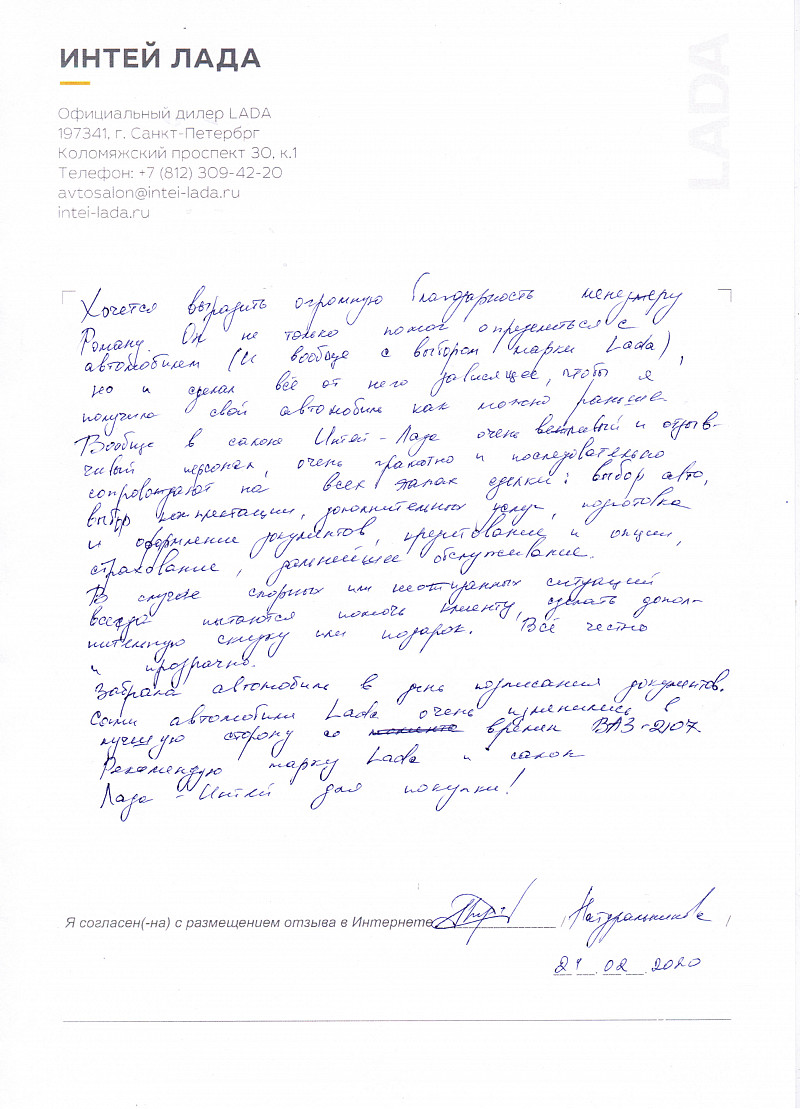 ИНТЕЙ ЛАДА
LADA
Официальный дилер LADA
197341, г. Санкт-Петербрг
Коломяжский проспект 30, к.1
Телефон: +7 (812) 309-42-20
avtosalon@intei-lada.ru
intei-lada.ru
Хочется выразить огромную благодарность менеджеру
Роману. Он не только помог определиться с
автомобилем (и вообще с выбором марки Lada),
но и сделал всё от него зависящее, чтобы я
получила свой автомобиль как можно раньше.
Вообще в салоне Интей-Лада очень вежливый и отзыв-
чивый персонал, очень грамотно и последовательно
сопровождают на всех этапах сделки: выбор авто,
выбор комплектации, дополнительных услуг, подготовка
и оформление документов, кредитование и опции,
страхование, дальнейшее обслуживание.
В случае спорных или нестандартных ситуаций
всегда пытаются помочь клиенту, сделать допол-
нительную скидку или подарок. Всё честно
и прозрачно.
Забрала автомобиль в день подписания документов.
Сами автомобили Lada очень изменились в
лучшую сторону со времён ВАЗ-2107
Рекомендую марку Lada и салон
Лада-Интей для покупки!
Я согласен(-на) с размещением отзыва в Интернете / Натуральникова /
21.02.2020